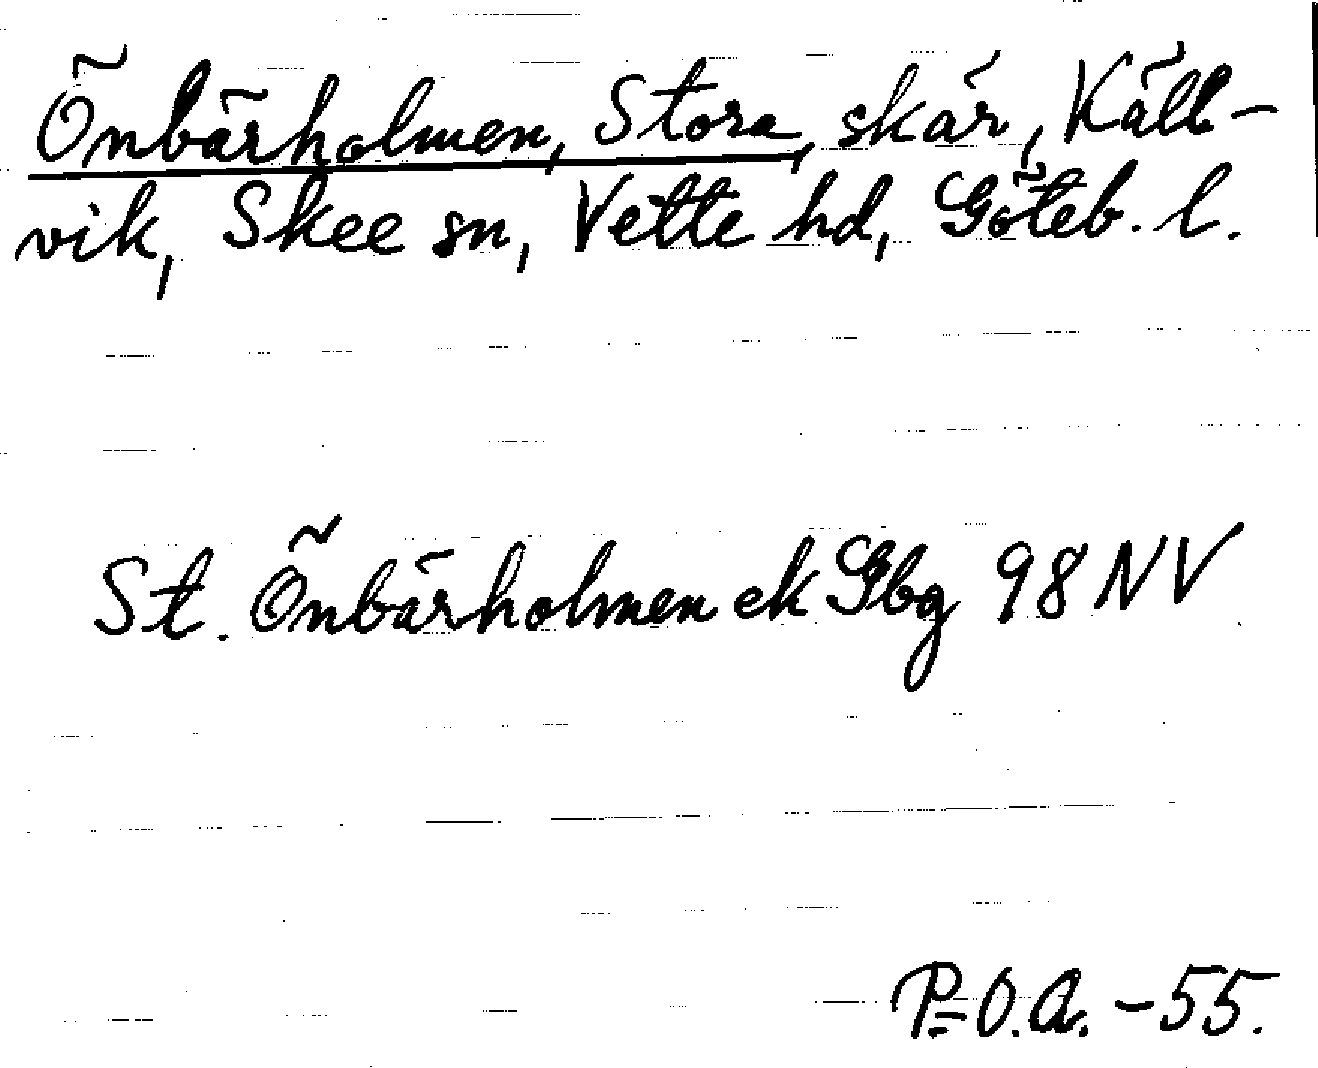 Önbärholmen, Stora, skär, Käll-
vik, Skee sn, Vette hd, Göteb. l.
St. Önbärholmen ek Gbg 98 NV
P=O.A. -55.